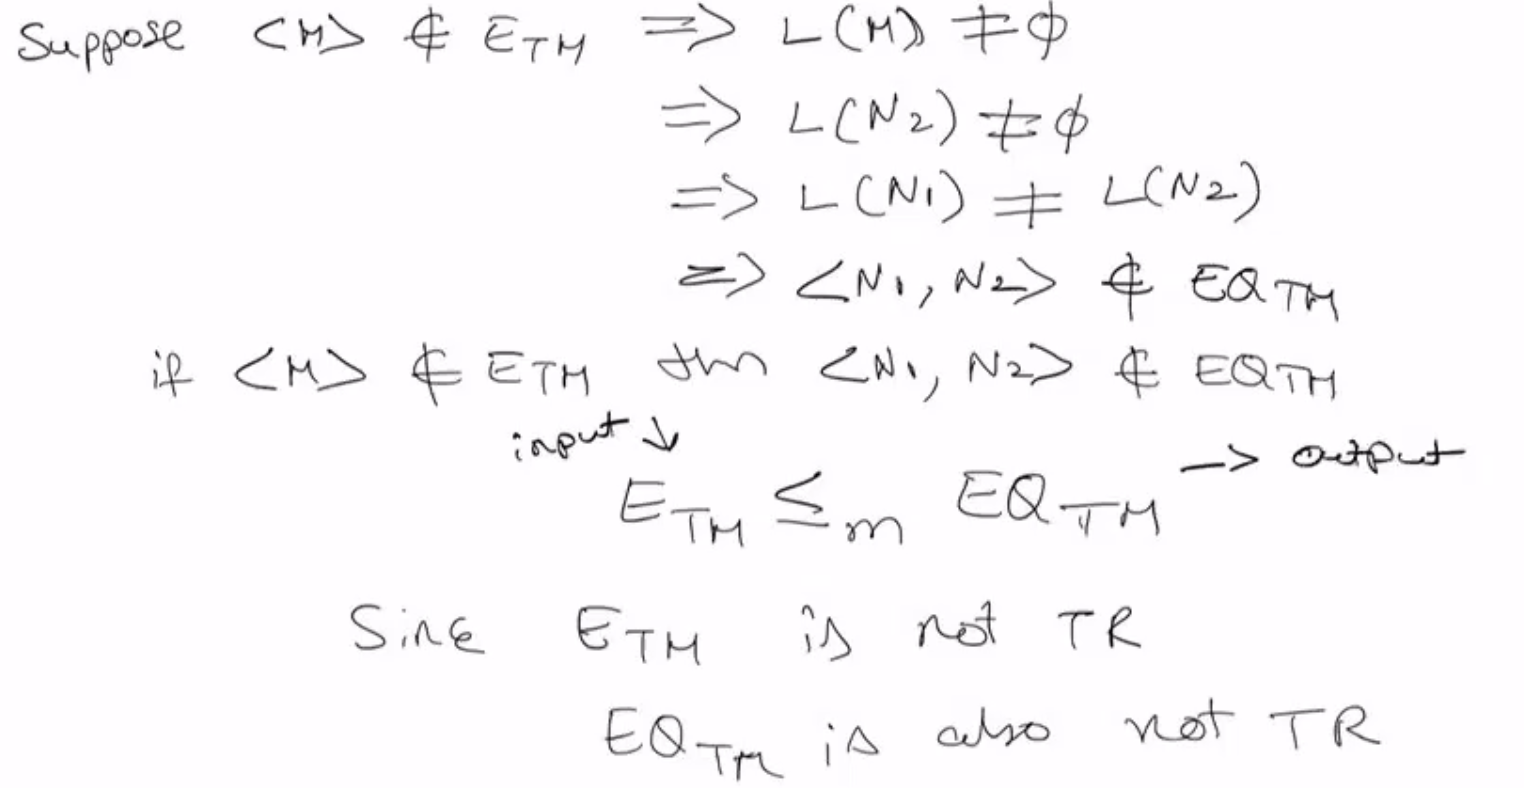 Suppose <M> ∉ E_TM => L(M) ≠ ϕ
=> L(N2) ≠ ϕ
=> L(N1) ≠ L(N2)
=> <N1, N2> ∉ EQ_TM
if <M> ∉ E_TM thn <N1, N2> ∉ EQ_TM
input ↓ -> output
E_TM ≤_m EQ_TM
Since E_TM is not TR
EQ_TM is also not TR